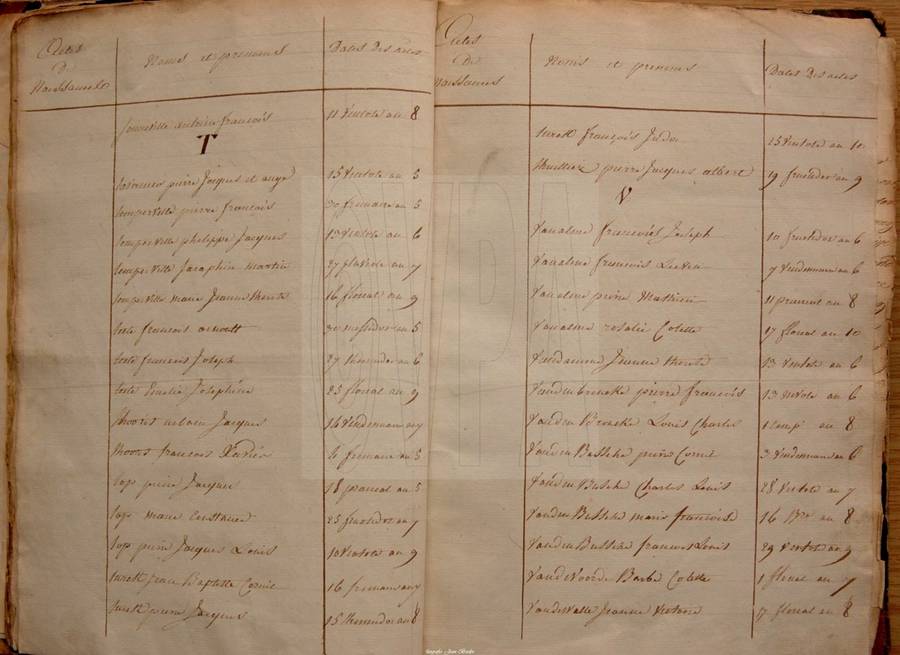 Actes
De
Naissances
Noms et prenoms
Dates Des actes
Jouneville antoine françois 11 Ventose an 8
T
pierre Jacques et ange 15 Ventose an 5
temperville pierre francois 30 frimaire an 5
temperville philippe Jacques 13 Ventose an 6
temperville Seraphin martin 27 pluviose an 7
temperville marie Jeanne therese 16 floreal an 9
toste francois arnoult 30 messidor an 5
toste francois Joseph 27 thermidor an 6
toste Emelie Josephine 25 floreal an 9
thoors urbain Jacques 16 Vendemiaire an 7
thoors francois Xavier 6 frimaire an 5
top pierre Jacques 18 prairial an 5
top marie constance 25 fructidor an 7
top pierre Jacques Louis 10 Ventose an 9
turck jean Baptiste Cornil 16 frimaire an 7
turck pierre Jacques 15 thermidor an 8
Actes
De
Naissances
Noms et prenoms
Dates Des actes
turck françois 15 Ventose an 10
thuilliez pierre Jacques albert 19 fructidor an 9
V
Vanalme francois Joseph 10 fructidor an 6
Vanalme francois 7 Vendemiaire an 6
Vanalme pierre Mathieu 11 prairial an 8
Vanalme rosalie Colette 17 floreal an 10
Vandamme Jeanne therese 13 Ventose an 6
Vandenbroucke pierre francois 13 nivose an 6
Vanden Broucke Louis Charles 1 comp. an 8
Vanden Bussche pierre Cornil 3 Vendemiaire an 6
Vanden Bussche Charles Louis 28 Ventose an 7
Vanden Bussche marie francoise 16 an 8
Vanden Bussche francois Louis 29 Ventose an 9
Vande Voorde Barbe Colette 1 floreal an 7
Vande Walle Jeanne Victoire 17 floreal an 8
GNPA